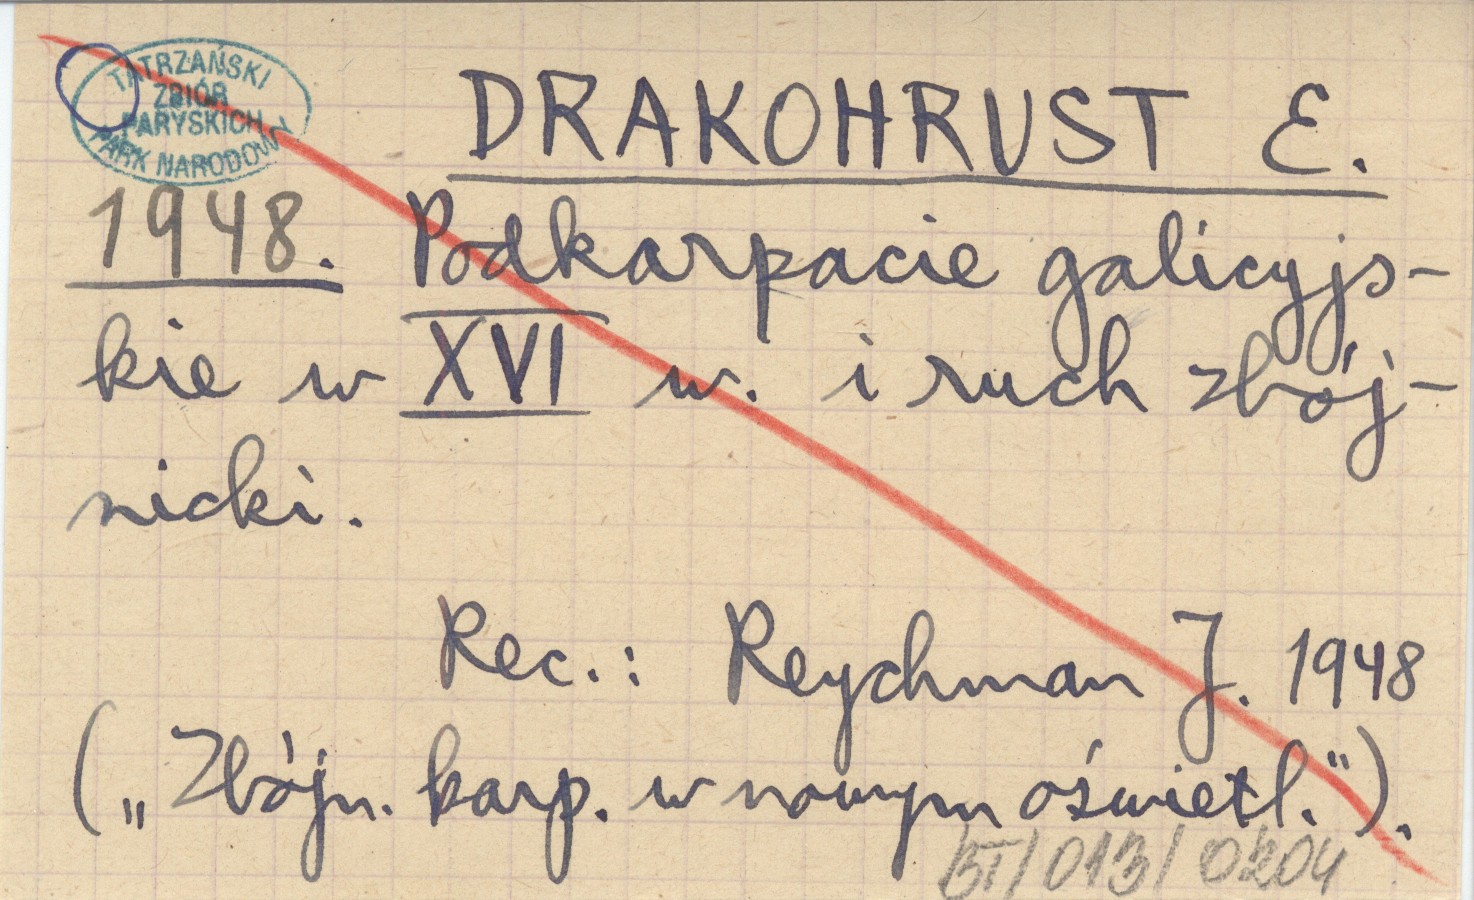 TATRZAŃSKI
ZBIÓR
PARYSKICH
PARK NARODOWY
DRAKOHRUST E.
1948. Podkarpacie galicyjs-
kie w XVI w. i ruch zbój-
nicki.
Rec.: Reychman J. 1948
(„Zbójn. karp. w nowym oświetl.").
BT/013/0204